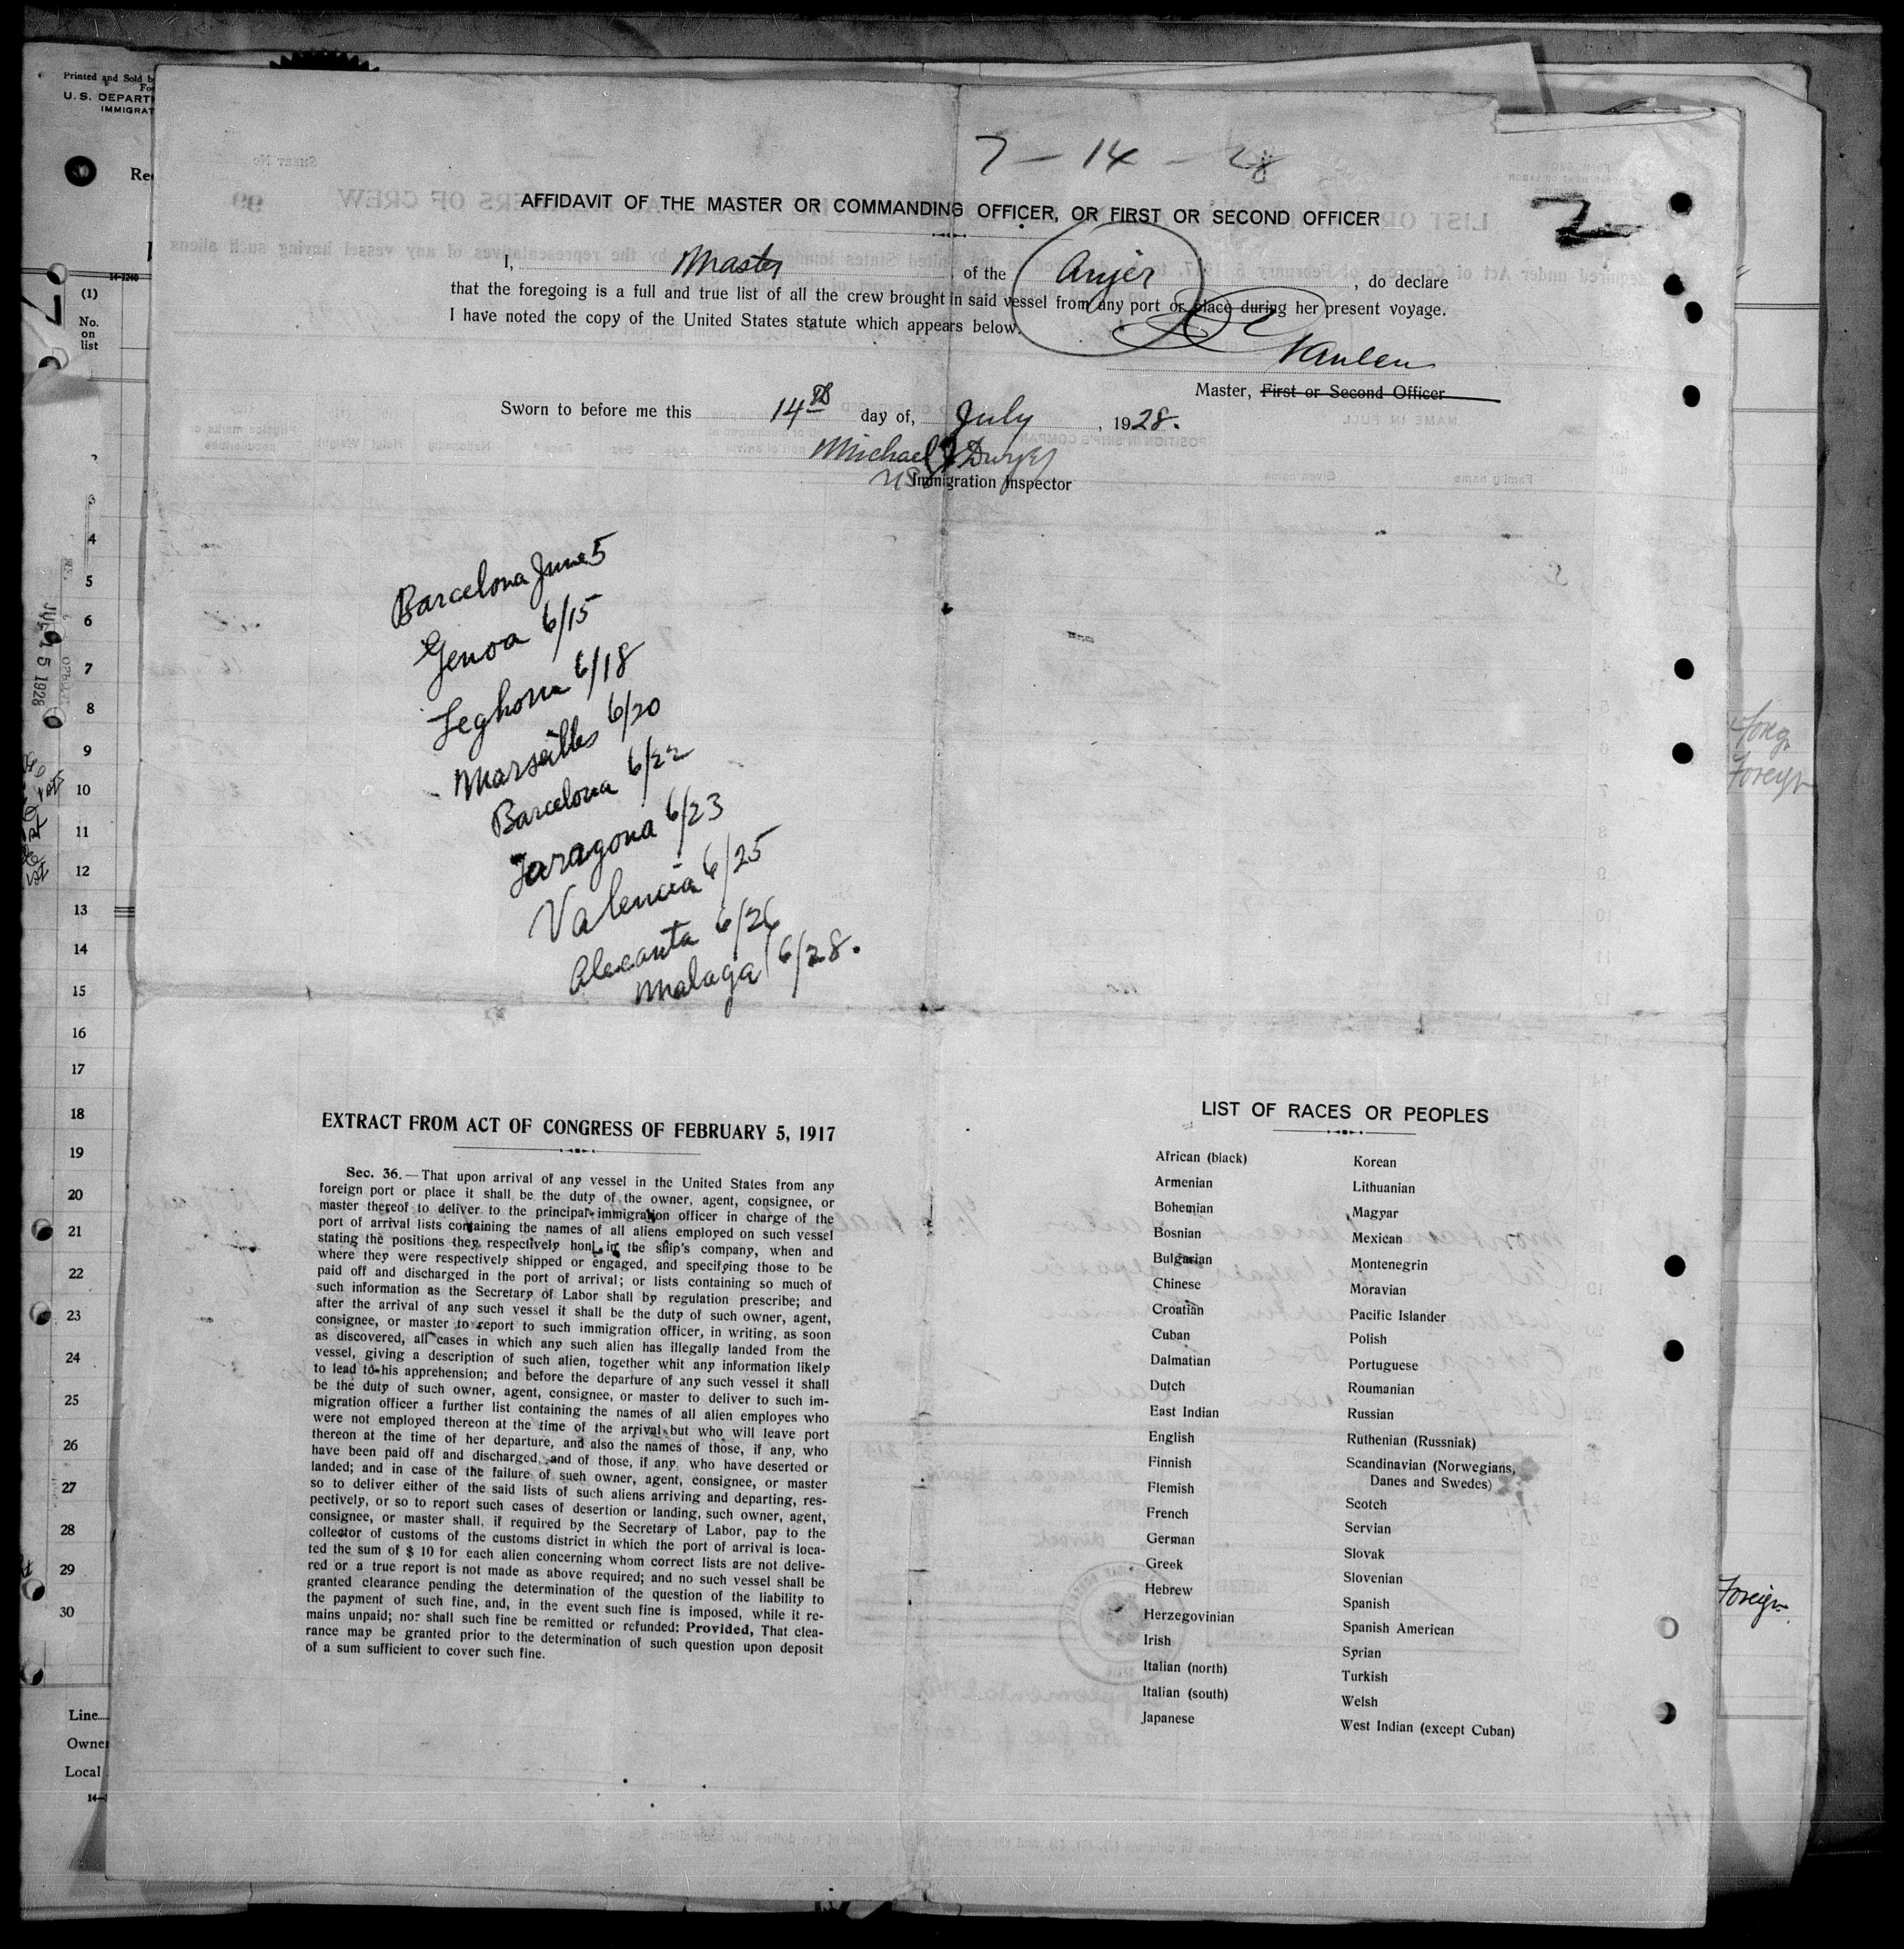 Printed and Sold b
U. S. DEPART
IMMIGRAT
Re
14-1240
(1)
No.
on
list
3
4
5
6
7
8
9
10
11
12
13
14
15
16
17
18
19
20
21
22
23
24
25
26
27
28
29
30
Line
Owner
Local
7 - 14 - 28
2
AFFIDAVIT OF THE MASTER OR COMMANDING OFFICER, OR FIRST OR SECOND OFFICER
I, Master of the Anjer, do declare
that the foregoing is a full and true list of all the crew brought in said vessel from any port or place during her present voyage.
I have noted the copy of the United States statute which appears below.
Master, First or Second Officer
Sworn to before me this 14th day of, July, 1928.
Michael J Dwyer
US Immigration Inspector
Barcelona June 5
Genoa 6/15
Leghorn 6/18
Marseilles 6/20
Barcelona 6/22
Taragona 6/23
Valencia 6/25
Alecanta 6/26
Malaga 6/28.
EXTRACT FROM ACT OF CONGRESS OF FEBRUARY 5, 1917
Sec. 36.—That upon arrival of any vessel in the United States from any
foreign port or place it shall be the duty of the owner, agent, consignee, or
master thereof to deliver to the principal immigration officer in charge of the
port of arrival lists containing the names of all aliens employed on such vessel
stating the positions they respectively honl in the ship's company, when and
where they were respectively shipped or engaged, and specifying those to be
paid off and discharged in the port of arrival; or lists containing so much of
such information as the Secretary of Labor shall by regulation prescribe; and
after the arrival of any such vessel it shall be the duty of such owner, agent,
consignee, or master to report to such immigration officer, in writing, as soon
as discovered, all cases in which any such alien has illegally landed from the
vessel, giving a description of such alien, together whit any information likely
to lead to his apprehension; and before the departure of any such vessel it shall
be the duty of such owner, agent, consignee, or master to deliver to such im-
migration officer a further list containing the names of all alien employes who
were not employed thereon at the time of the arrival but who will leave port
thereon at the time of her departure, and also the names of those, if any, who
have been paid off and discharged, and of those, if any. who have deserted or
landed; and in case of the failure of such owner, agent, consignee, or master
so to deliver either of the said lists of such aliens arriving and departing, res-
pectively, or so to report such cases of desertion or landing, such owner, agent,
consignee, or master shall, if required by the Secretary of Labor, pay to the
collector of customs of the customs district in which the port of arrival is loca-
ted the sum of $ 10 for each alien concerning whom correct lists are not delive-
red or a true report is not made as above required; and no such vessel shall be
granted clearance pending the determination of the question of the liability to
the payment of such fine, and, in the event such fine is imposed, while it re-
mains unpaid; nor shall such fine be remitted or refunded: Provided, That clea-
rance may be granted prior to the determination of such question upon deposit
of a sum sufficient to cover such fine.
LIST OF RACES OR PEOPLES
African (black)
Armenian
Bohemian
Bosnian
Bulgarian
Chinese
Croatian
Cuban
Dalmatian
Dutch
East Indian
English
Finnish
Flemish
French
German
Greek
Hebrew
Herzegovinian
Irish
Italian (north)
Italian (south)
Japanese
Korean
Lithuanian
Magyar
Mexican
Montenegrin
Moravian
Pacific Islander
Polish
Portuguese
Roumanian
Russian
Ruthenian (Russniak)
Scandinavian (Norwegians,
Danes and Swedes)
Scotch
Servian
Slovak
Slovenian
Spanish
Spanish American
Syrian
Turkish
Welsh
West Indian (except Cuban)
Foreign
Foreign